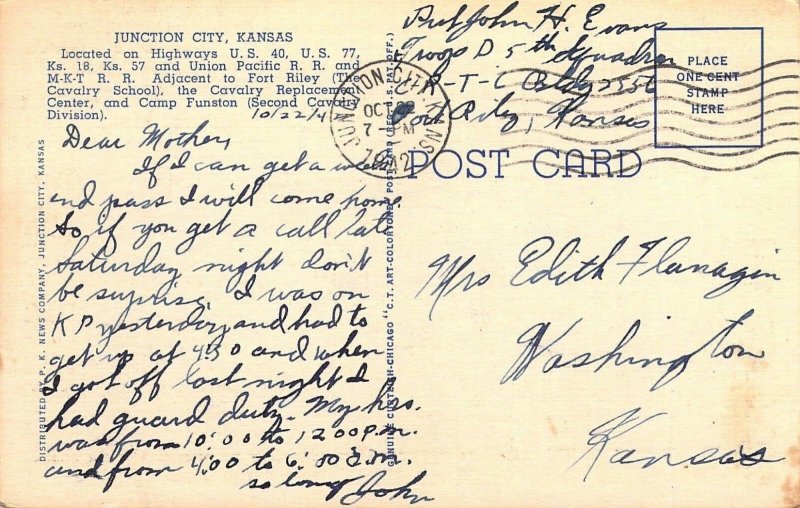 JUNCTION CITY, KANSAS
Located on Highways U.S. 40, U.S. 77,
Ks. 18, Ks. 57 and Union Pacific R. R. and
M-K-T R. R. Adjacent to Fort Riley (The
Cavalry School), the Cavalry Replacement
Center, and Camp Funston (Second Cavalry
Division).
10/22/4
Dear Mother,
If I can get a week
end pass I will come home.
So if you get a call late
Saturday night don't
be surprise. I was on
K P yesterday and had to
get up at 4:30 and when
I got off last night I
had guard duty. My hrs.
was from 10:00 to 1200 P.m.
and from 4:00 to 6:00 a.m.
so long John
DISTRIBUTED BY P. K. NEWS COMPANY, JUNCTION CITY, KANSAS
GENUINE CURTEICH-CHICAGO "C.T. ART-COLORTONE" POST CARD (REG. U.S. PAT. OFF.)
Pvt John H. Evans
Troop D 5th Squadron
C-R-T-C Bldg 2356
Fort Riley, Kansas
JUNCTION CITY KANS
OCT 22
7- M
1942
PLACE
ONE CENT
STAMP
HERE
POST CARD
Mrs Edith Flanagin
Washington
Kansas